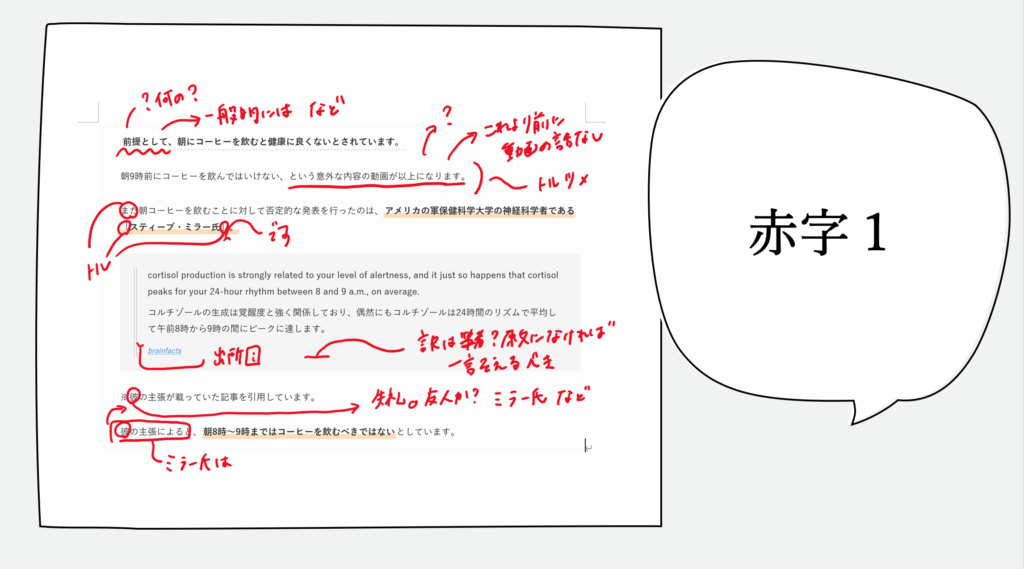 ?何の?
一般的には など
前提として、朝にコーヒーを飲むと健康に良くないとされています。
?
これより前に
動画の話なし
朝9時前にコーヒーを飲んではいけない、という意外な内容の動画が以上になります。
トルツメ
また朝コーヒーを飲むことに対して否定的な発表を行ったのは、アメリカの軍保健科学大学の神経科学者である
「スティーブ・ミラー氏」。
です
トル
cortisol production is strongly related to your level of alertness, and it just so happens that cortisol
peaks for your 24-hour rhythm between 8 and 9 a.m., on average.
コルチゾールの生成は覚醒度と強く関係しており、偶然にもコルチゾールは24時間のリズムで平均し
て午前8時から9時の間にピークに達します。
訳は筆者?原文になければ
一言そえるべき
brainfacts
出所:
※彼の主張が載っていた記事を引用しています。
失礼。友人か? ミラー氏 など
彼の主張によると、朝8時〜9時まではコーヒーを飲むべきではないとしています。
ミラー氏は
赤字1